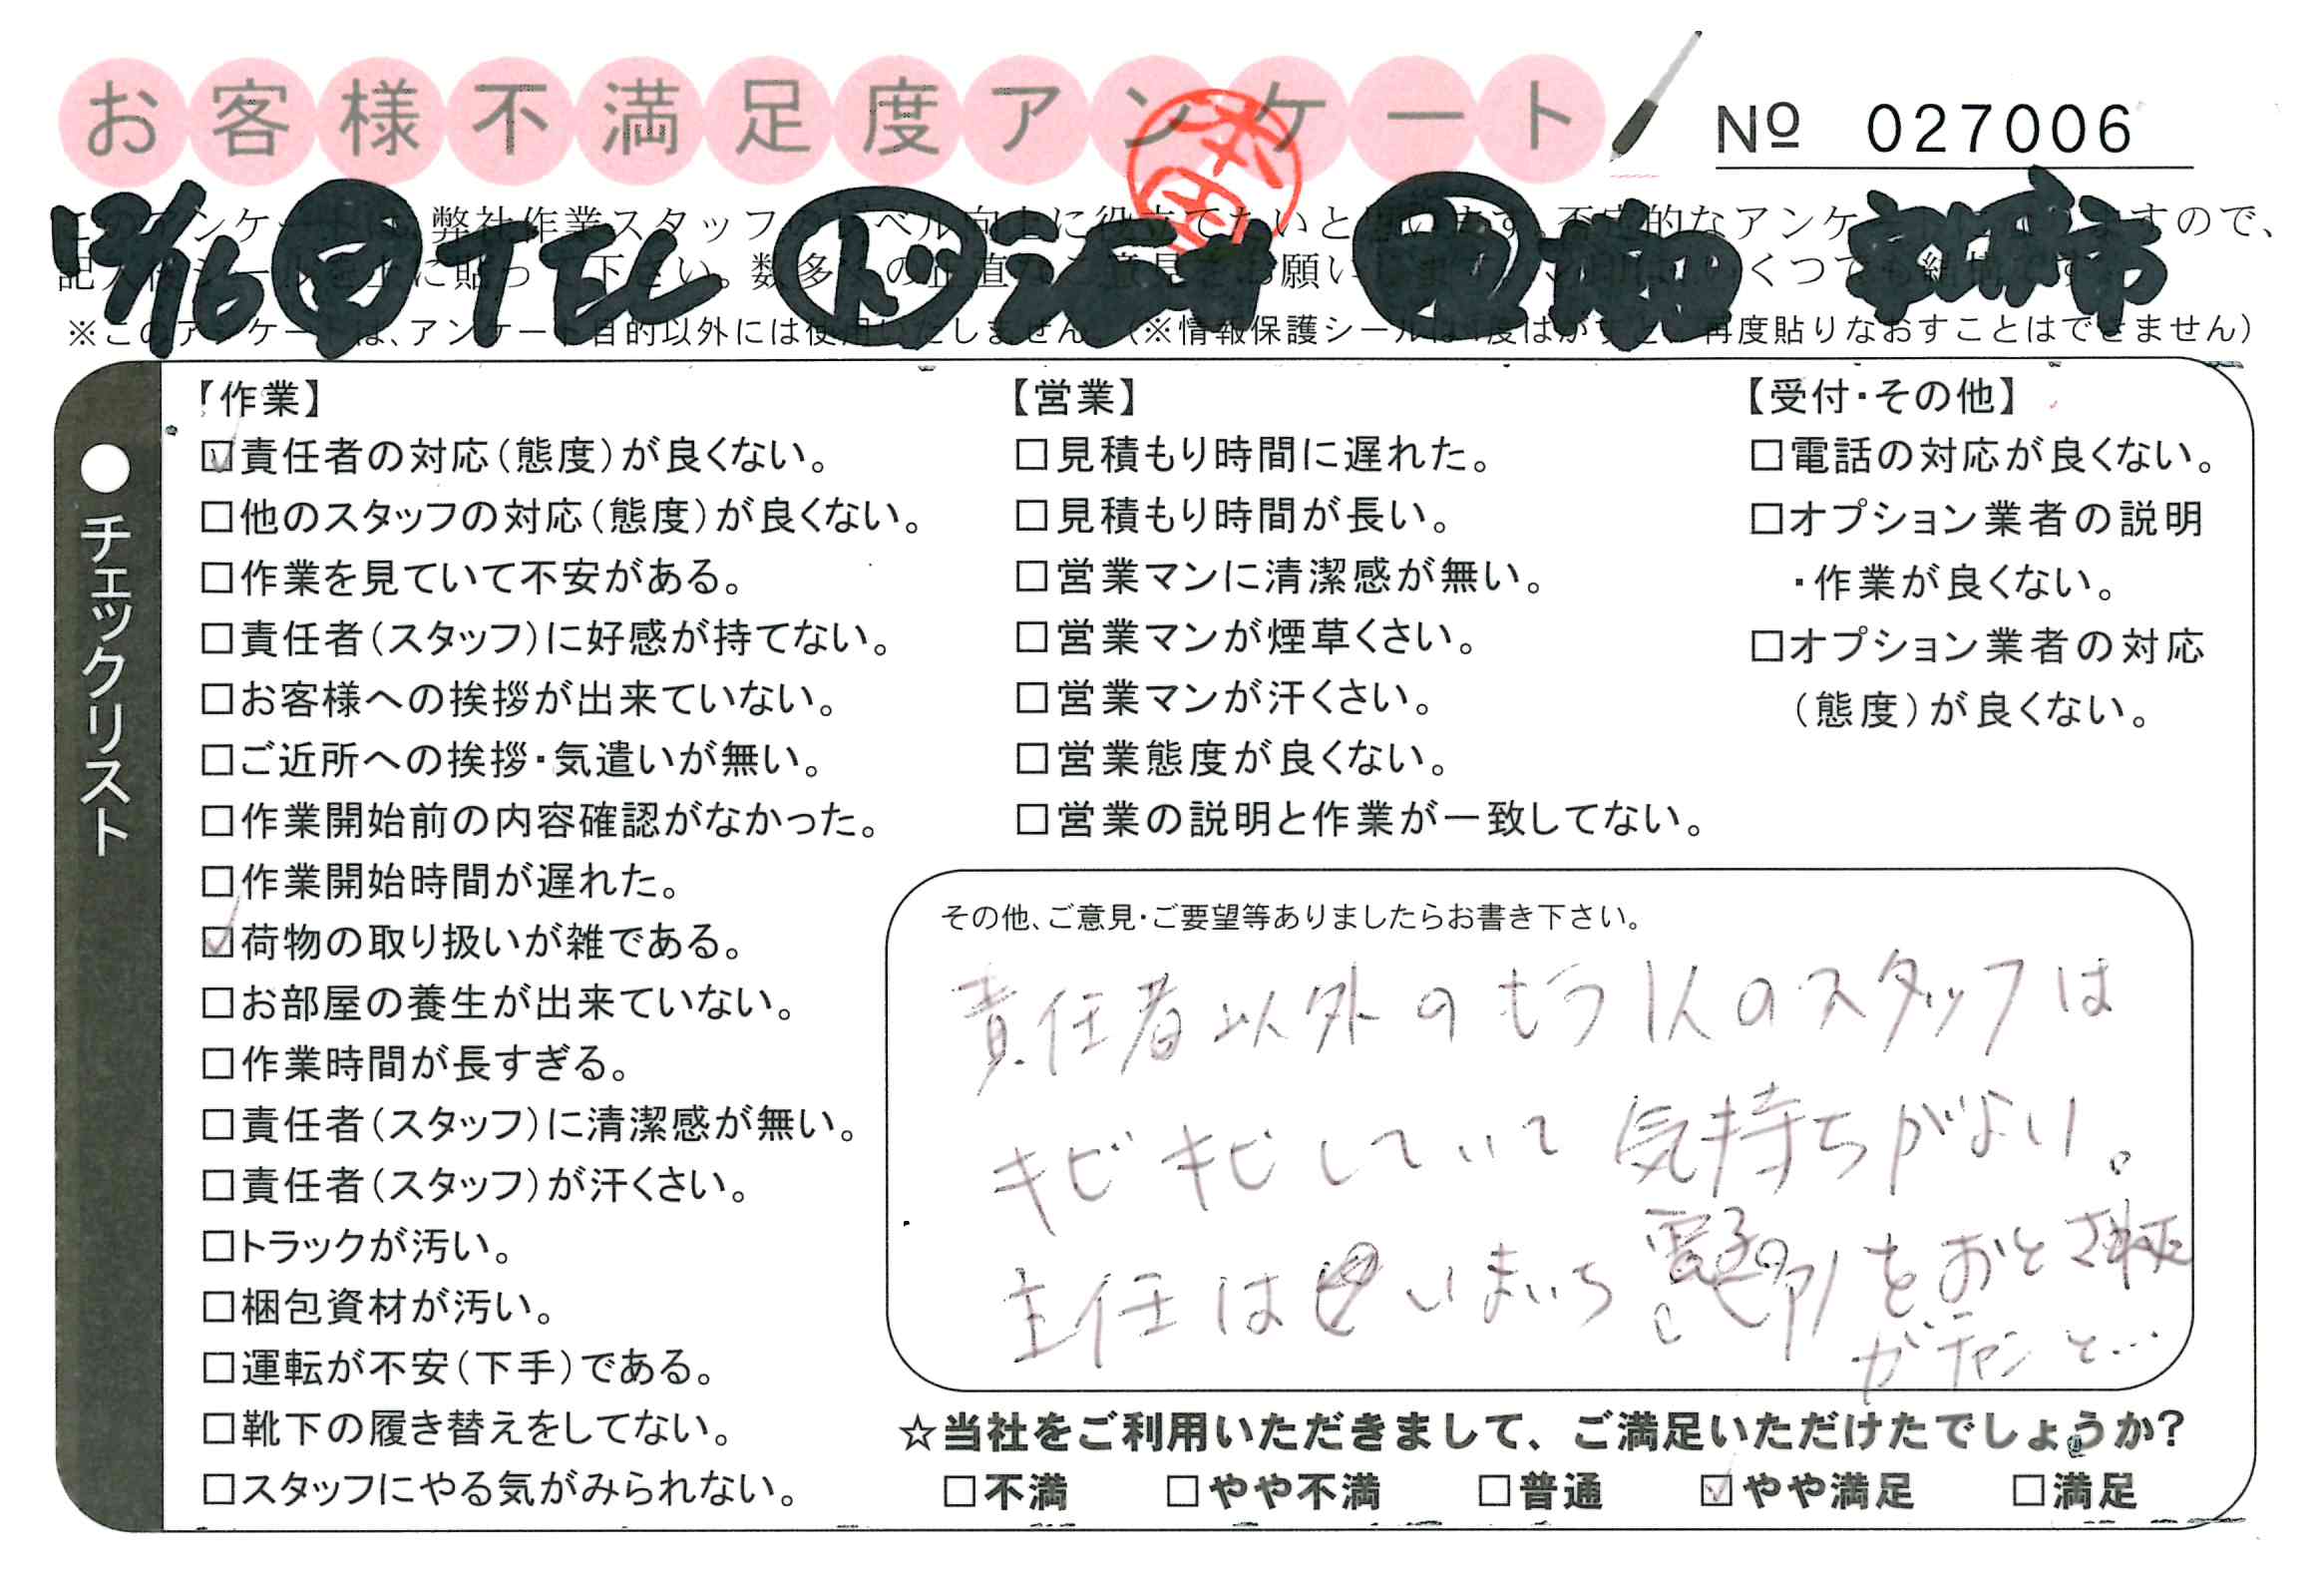 お客様不満足度アンケート
Nº 027006
12/16 TEL
弊社作業スタッフ
※このアンケートは、アンケート目的以外には使用いたしません。(※情報保護シールは1度はがすと、再度貼りなおすことはできません)
●チェックリスト
【作業】
☑責任者の対応(態度)が良くない。
□他のスタッフの対応(態度)が良くない。
□作業を見ていて不安がある。
□責任者(スタッフ)に好感が持てない。
□お客様への挨拶が出来ていない。
□ご近所への挨拶・気遣いが無い。
□作業開始前の内容確認がなかった。
□作業開始時間が遅れた。
☑荷物の取り扱いが雑である。
□お部屋の養生が出来ていない。
□作業時間が長すぎる。
□責任者(スタッフ)に清潔感が無い。
□責任者(スタッフ)が汗くさい。
□トラックが汚い。
□梱包資材が汚い。
□運転が不安(下手)である。
□靴下の履き替えをしてない。
□スタッフにやる気がみられない。
【営業】
□見積もり時間に遅れた。
□見積もり時間が長い。
□営業マンに清潔感が無い。
□営業マンが煙草くさい。
□営業マンが汗くさい。
□営業態度が良くない。
□営業の説明と作業が一致してない。
【受付・その他】
□電話の対応が良くない。
□オプション業者の説明
・作業が良くない。
□オプション業者の対応
(態度)が良くない。
その他、ご意見・ご要望等ありましたらお書き下さい。
責任者以外のもう1人のスタッフは
キビキビしていて気持ちがよい。
主任は いまいち をおとされた
ガチャンと…
☆当社をご利用いただきまして、ご満足いただけたでしょうか?
□不満 □やや不満 □普通 ☑やや満足 □満足